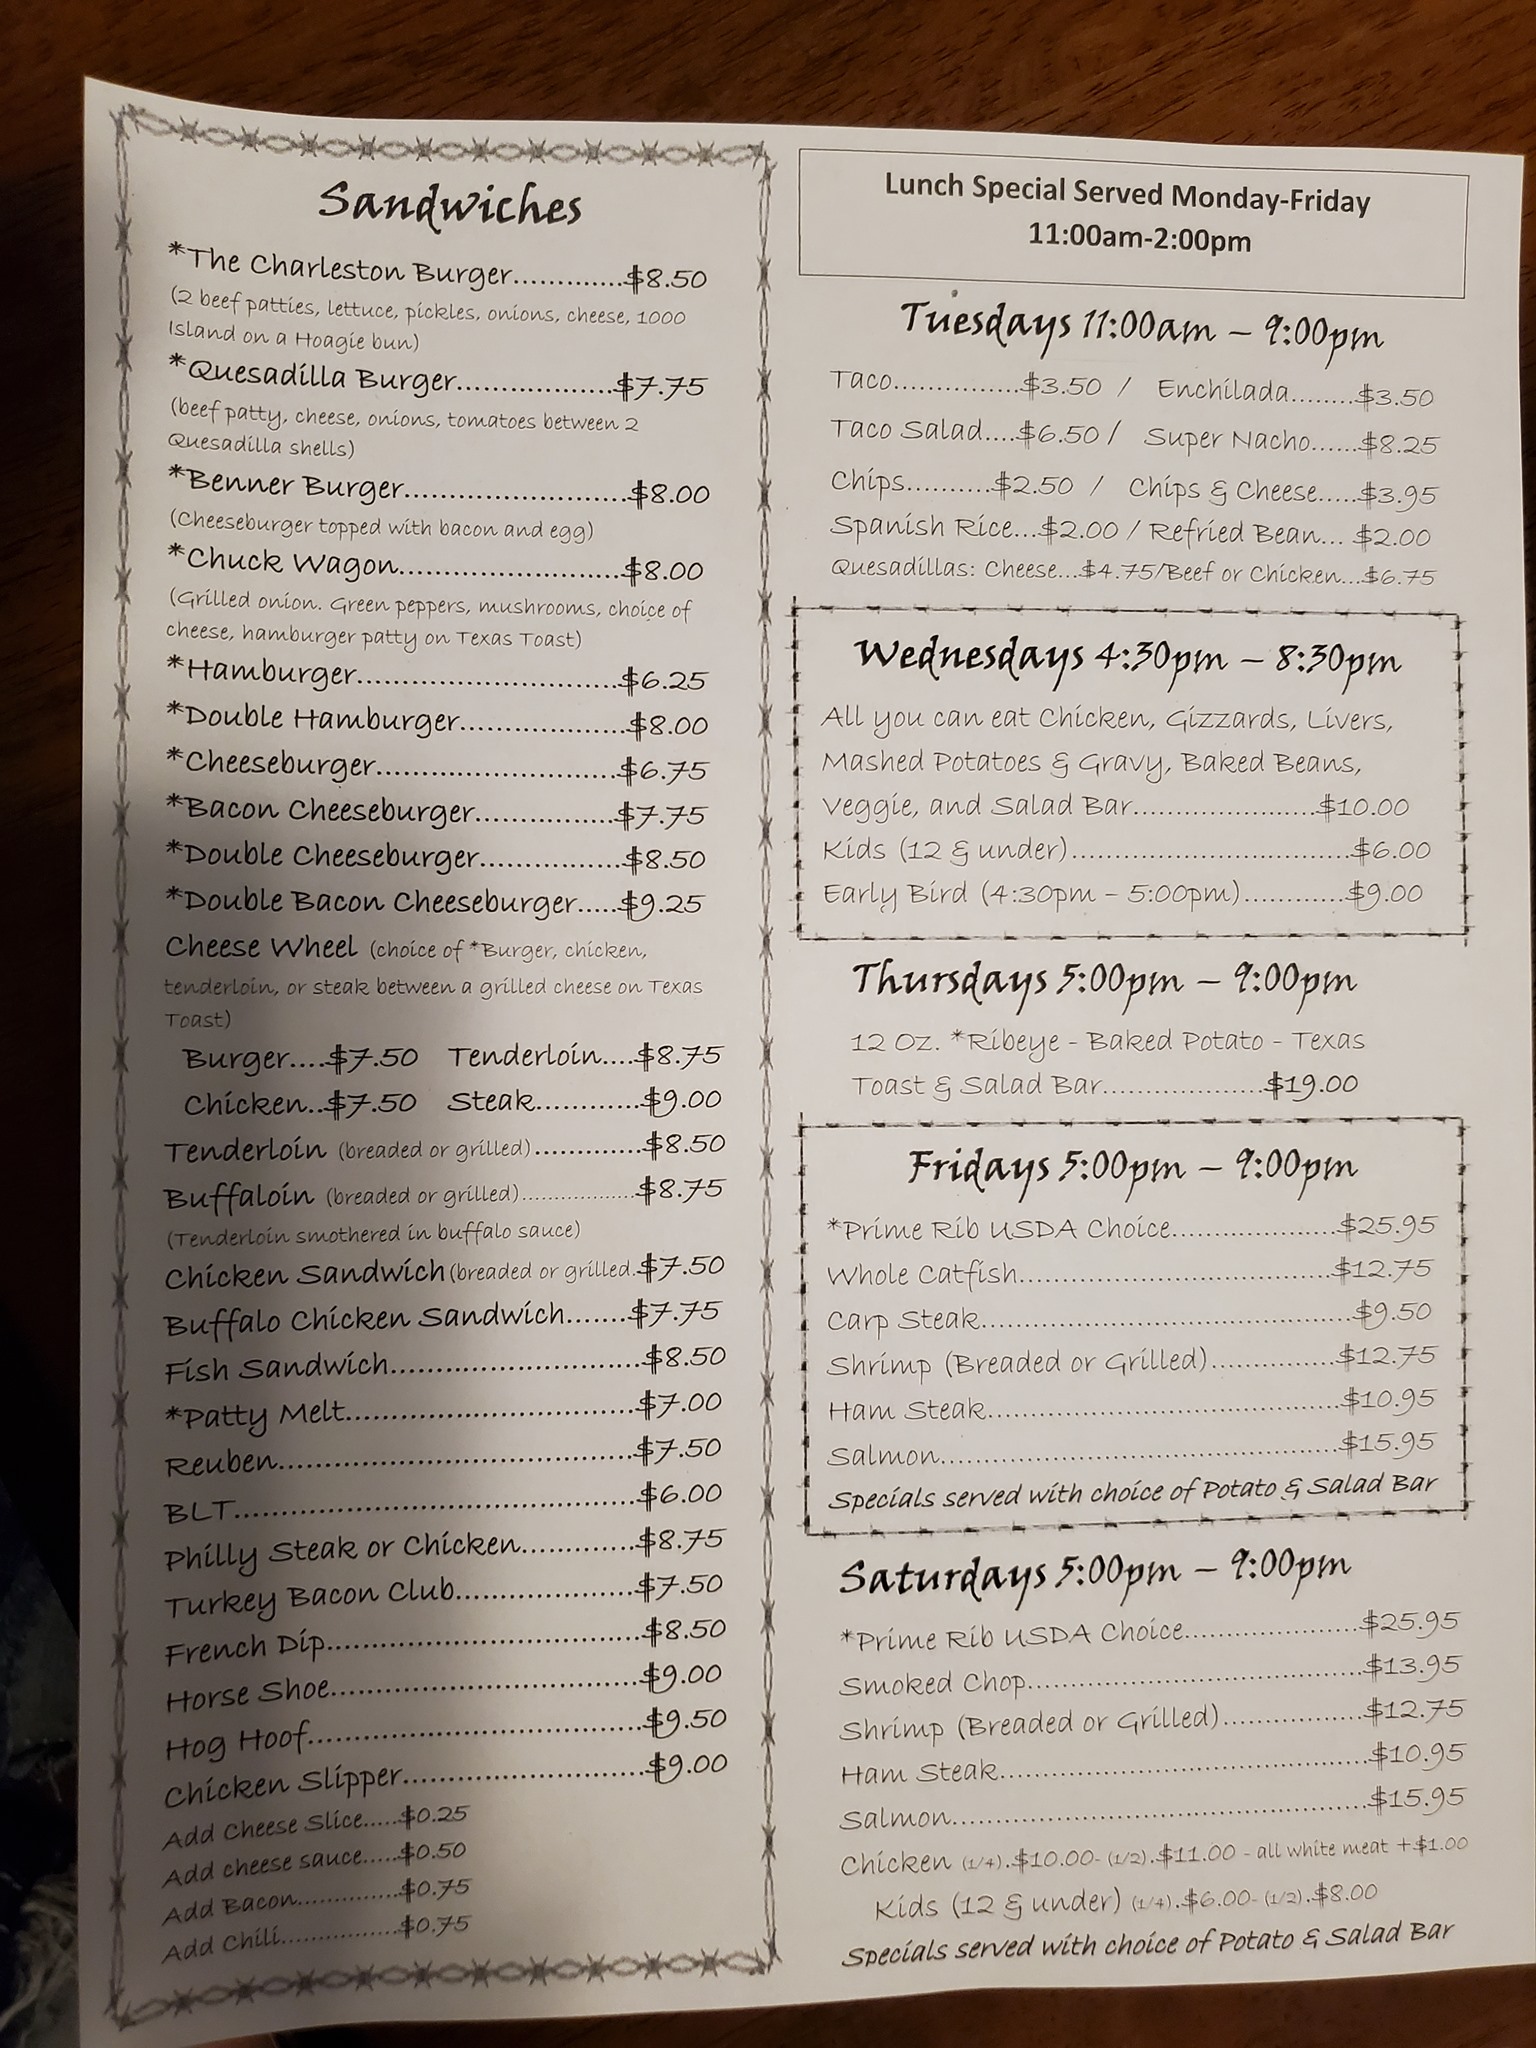 Sandwiches
*The Charleston Burger.............$8.50
(2 beef patties, lettuce, pickles, onions, cheese, 1000
Island on a Hoagie bun)
*Quesadilla Burger..................$7.75
(beef patty, cheese, onions, tomatoes between 2
Quesadilla shells)
*Benner Burger..........................$8.00
(Cheeseburger topped with bacon and egg)
*Chuck Wagon..........................$8.00
(Grilled onion. Green peppers, mushrooms, choice of
cheese, hamburger patty on Texas Toast)
*Hamburger..............................$6.25
*Double Hamburger...................$8.00
*Cheeseburger............................$6.75
*Bacon Cheeseburger................$7.75
*Double Cheeseburger................$8.50
*Double Bacon Cheeseburger.....$9.25
Cheese Wheel (choice of *Burger, chicken,
tenderloin, or steak between a grilled cheese on Texas
Toast)
Burger....$7.50 Tenderloin....$8.75
Chicken..$7.50 Steak............$9.00
Tenderloin (breaded or grilled).............$8.50
Buffaloin (breaded or grilled)....................$8.75
(Tenderloin smothered in buffalo sauce)
Chicken Sandwich (breaded or grilled.$7.50
Buffalo Chicken Sandwich.......$7.75
Fish Sandwich.............................$8.50
*Patty Melt.................................$7.00
Reuben.........................................$7.50
BLT..............................................$6.00
Philly Steak or Chicken.............$8.75
Turkey Bacon Club....................$7.50
French Dip....................................$8.50
Horse Shoe...................................$9.00
Hog Hoof.....................................$9.50
Chicken Slipper...........................$9.00
Add Cheese Slice.....$0.25
Add cheese sauce.....$0.50
Add Bacon..............$0.75
Add Chili.................$0.75
Lunch Special Served Monday-Friday
11:00am-2:00pm
Tuesdays 11:00am – 9:00pm
Taco...............$3.50 / Enchilada........$3.50
Taco Salad....$6.50 / Super Nacho......$8.25
Chips..........$2.50 / Chips & Cheese.....$3.95
Spanish Rice...$2.00 / Refried Bean... $2.00
Quesadillas: Cheese...$4.75/Beef or Chicken...$6.75
Wednesdays 4:30pm – 8:30pm
All you can eat Chicken, Gizzards, Livers,
Mashed Potatoes & Gravy, Baked Beans,
Veggie, and Salad Bar......................$10.00
Kids (12 & under)..................................$6.00
Early Bird (4:30pm – 5:00pm).............$9.00
Thursdays 5:00pm – 9:00pm
12 Oz. *Ribeye - Baked Potato - Texas
Toast & Salad Bar....................$19.00
Fridays 5:00pm – 9:00pm
*Prime Rib USDA Choice.....................$25.95
Whole Catfish......................................$12.75
Carp Steak.............................................$9.50
Shrimp (Breaded or Grilled)................$12.75
Ham Steak...........................................$10.95
Salmon................................................$15.95
Specials served with choice of Potato & Salad Bar
Saturdays 5:00pm – 9:00pm
*Prime Rib USDA Choice......................$25.95
Smoked Chop.........................................$13.95
Shrimp (Breaded or Grilled)..................$12.75
Ham Steak.............................................$10.95
Salmon...................................................$15.95
Chicken (1/4).$10.00- (1/2).$11.00 - all white meat +$1.00
Kids (12 & under) (1/4).$6.00- (1/2).$8.00
Specials served with choice of Potato & Salad Bar